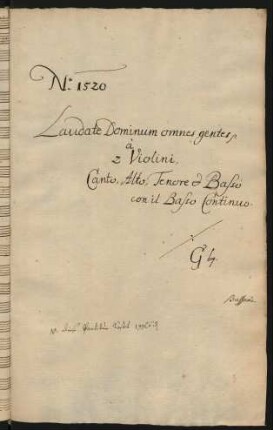 N.º 1520
Laudate Dominum omnes gentes,
à
2 Violini,
Canto, Alto, Tenore è Basso
con il Basso Continuo.
G ♮
Bassani